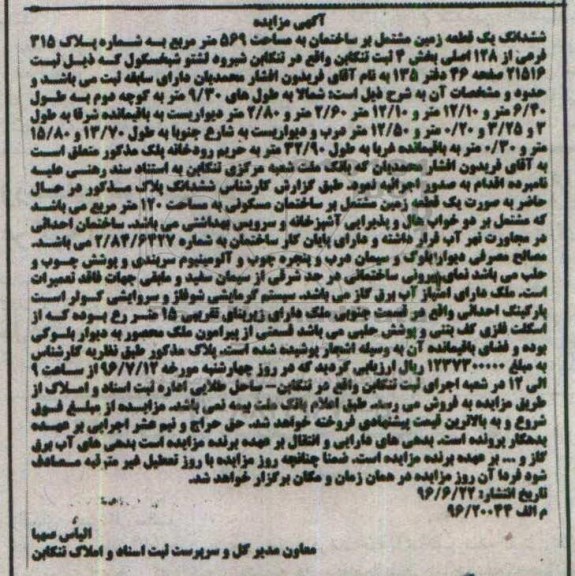 آگهی مزایده
ششدانگ یک قطعه زمین مشتمل بر ساختمان به مساحت ۵۶۹ متر مربع به شماره پلاک ۳۱۵
فرعی از ۱۲۸ اصلی بخش ۴ ثبت تنکابن واقع در تنکابن شیرود لشتو شیخسکول که ذیل ثبت
۲۱۵۱۶ صفحه ۴۶ دفتر ۱۳۵ به نام آقای فریدون افشار محمدیان دارای سابقه ثبت می باشد و
حدود و مشخصات آن به شرح ذیل است: شمالا به طول های ۹/۳۰ متر به کوچه دوم به طول
۶/۴۰ متر و ۱۰/۱۲ متر و ۱۰/۱۲ متر ۲/۶۰ متر و ۲/۸۰ متر دیواریست به باقیمانده شرقا به طول
۲ و ۳/۲۵ و ۰/۲۰ متر و ۱۲/۵۰ متر درب و دیواریست به شارع جنوبا به طول ۱۳/۷۰ و ۱۵/۸۰
متر و ۰/۳۰ متر به باقیمانده غربا به طول ۳۲/۹۰ متر به حریم رودخانه پلاک مذکور متعلق است
به آقای فریدون افشار محمدیان که بانک ملت شعبه مرکزی تنکابن به استناد سند رهنی علیه
نامبرده اقدام به صدور اجرائیه نمود. طبق گزارش کارشناس ششدانگ پلاک مذکور در حال
حاضر به صورت یک قطعه زمین مشتمل بر ساختمان مسکونی به مساحت ۱۲۰ متر مربع می باشد
که مشتمل بر دو خواب هال و پذیرایی آشپزخانه و سرویس بهداشتی می باشد. ساختمان احداثی
در مجاورت نهر آب قرار داشته و دارای پایان کار ساختمان به شماره ۲/۸۴/۶۴۲۷ می باشد.
مصالح مصرفی دیوار بلوک و سیمان درب و پنجره چوب و آلومینیوم سربندی و پوشش چوب و
حلب می باشد نمای بیرونی ساختمانی در حد شرقی از سیمان سفید و مابقی جهات فاقد تعمیرات
است. ملک دارای امتیاز آب برق گاز می باشد. سیستم گرمایشی شوفاژ و سرمایشی کولر است
پارکینگ احداثی واقع در قسمت جنوبی ملک دارای زیربنای تقریبی ۱۵ متر مربع بوده که از
اسکلت فلزی کف بتنی و پوشش حلبی می باشد قسمتی از پیرامون ملک محصور به دیوار بلوکی
بوده و فضای باقیمانده آن به وسیله اشجار پوشیده شده است. پلاک مذکور طبق نظریه کارشناس
به مبلغ ۱۲۳۷۳۰۰۰۰۰ ریال ارزیابی گردید که در روز چهارشنبه مورخه ۹۶/۷/۱۲ از ساعت ۹
الی ۱۲ در شعبه اجرای ثبت تنکابن واقع در تنکابن- ساحل طلایی اداره ثبت اسناد و املاک از
طریق مزایده به فروش می رسد. طبق اعلام بانک ملک بیمه نمی باشد. مزایده از مبلغ فوق
شروع و به بالاترین قیمت پیشنهادی فروخته خواهد شد. حق حراج و نیم عشر اجرایی بر عهده
بدهکار پرونده است. بدهی های دارایی و انتقال بر عهده برنده مزایده است بدهی های آب برق
گاز و ... بر عهده برنده مزایده است. ضمنا چنانچه روز مزایده با روز تعطیل غیر مترقبه مصادف
شود فردا آن روز مزایده در همان زمان و مکان برگزار خواهد شد.
تاریخ انتشار: ۹۶/۶/۲۲
م الف ۹۶/۲۰۰۴۴
الیاس صهبا
معاون مدیر کل و سرپرست ثبت اسناد و املاک تنکابن